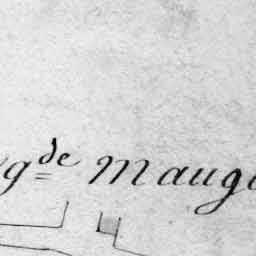 gde Maug